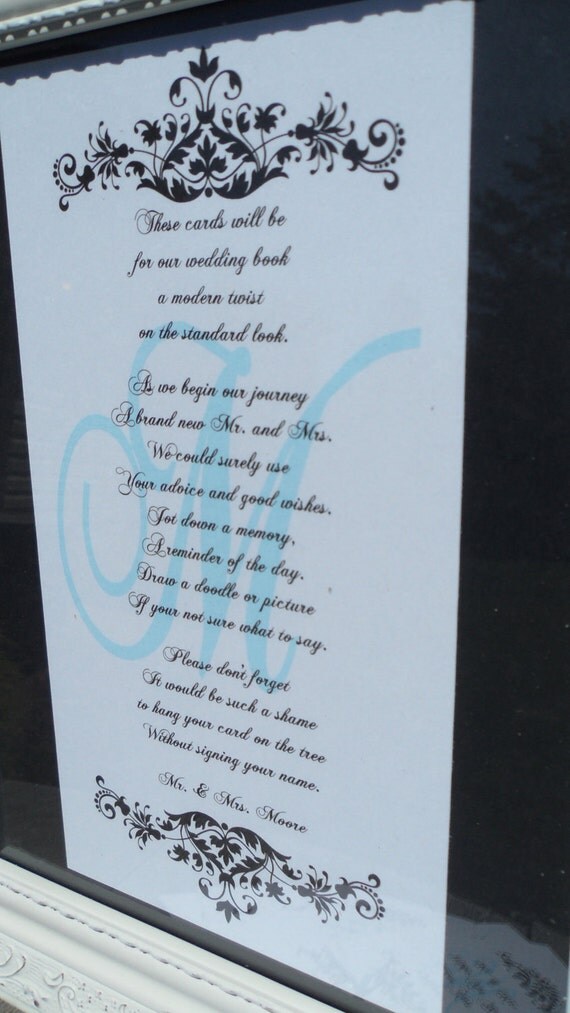 These cards will be
for our wedding book
a modern twist
on the standard look.
As we begin our journey
A brand new Mr. and Mrs.
We could surely use
Your advice and good wishes.
Jot down a memory,
A reminder of the day.
Draw a doodle or picture
If your not sure what to say.
Please don't forget
It would be such a shame
to hang your card on the tree
Without signing your name.
Mr. & Mrs. Moore
M